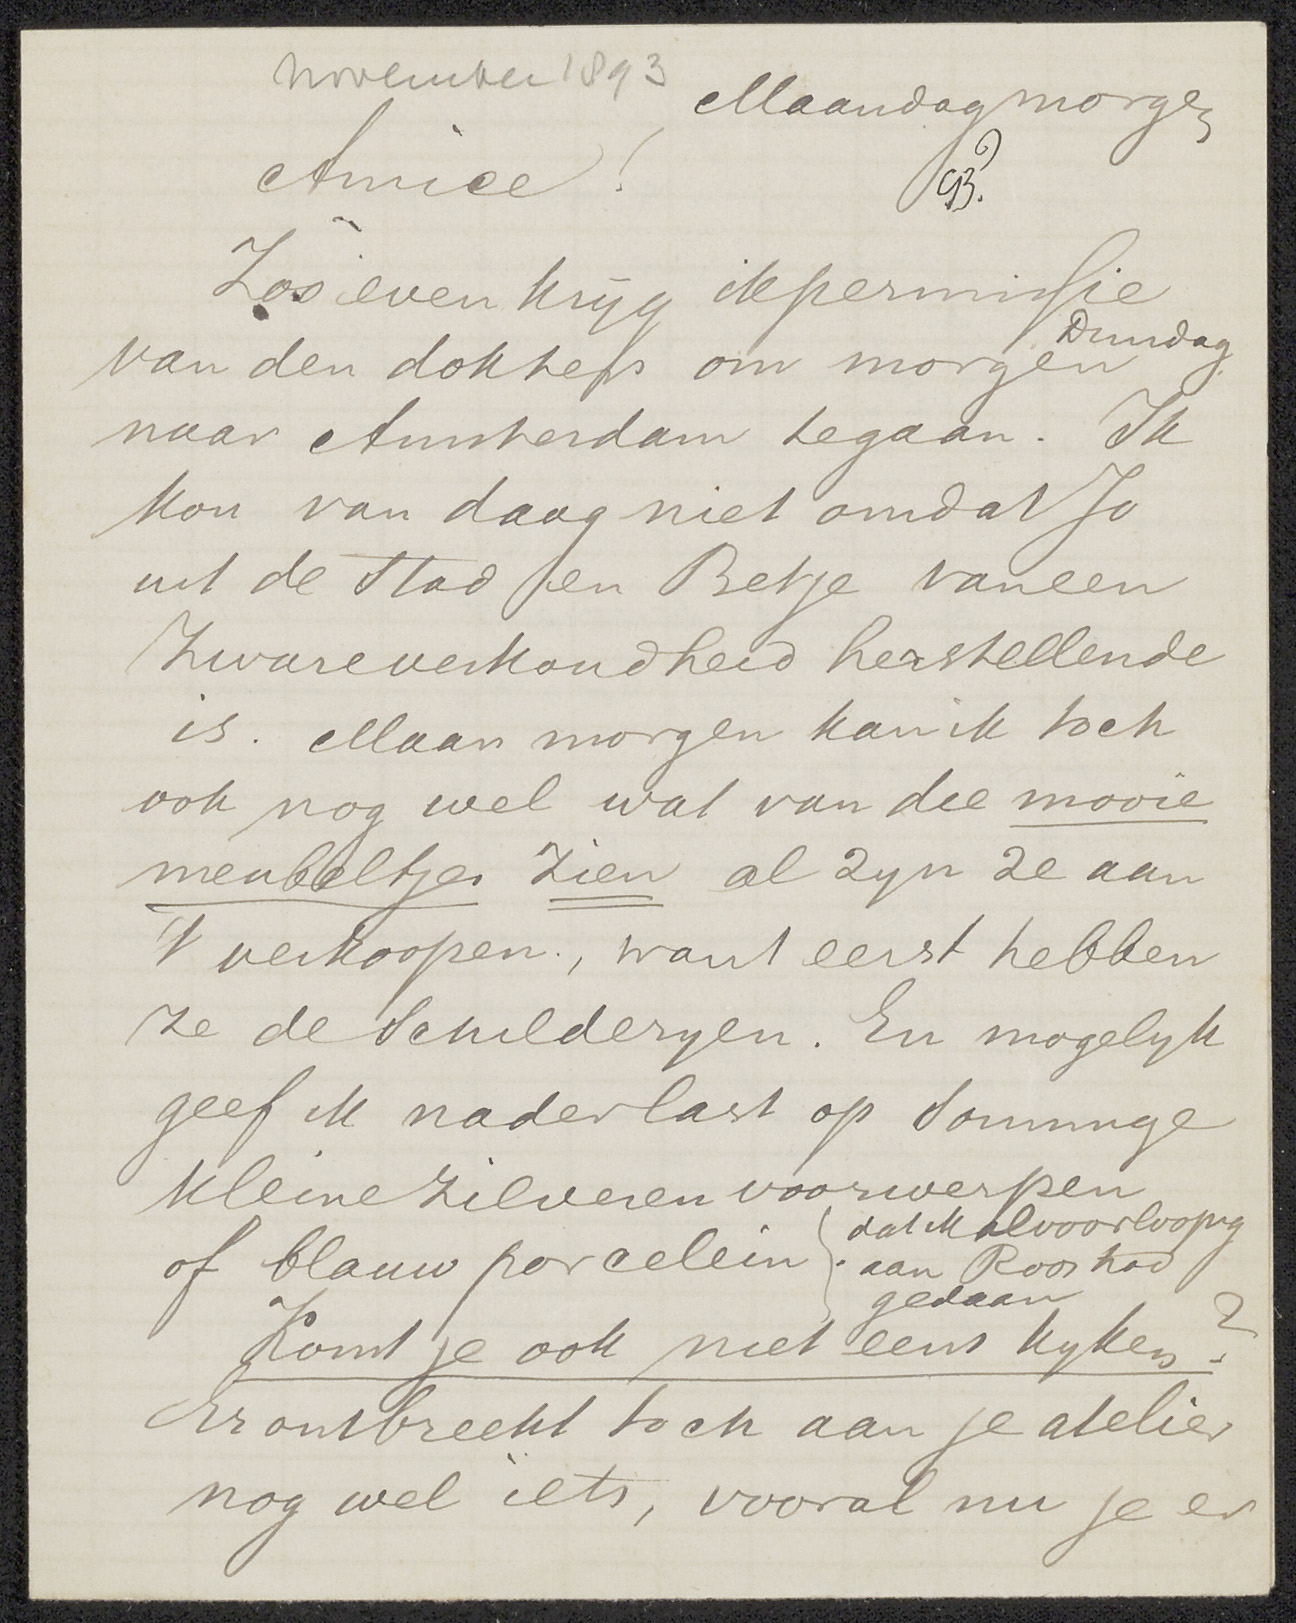 november 1893
Maandagmorgen
93?
Amice!
Zoo even krijg ik permissie
van den dokters om morgen Dinsdag
naar Amsterdam tegaan. Ik
kon van daag niet omdat Jo
uit de Stad en Betje van een
zware verkoudheid herstellende
is. Maar morgen kan ik toch
ook nog wel wat van die mooie
meubeltjes zien al zyn ze aan
't verkoopen., want eerst hebben
ze de Schilderyen. En mogelyk
geef ik nader last op Sommige
kleine zilveren voorwerpen
of blauw porcelein dat ik al voorloopig
aan Roos had
gedaan
Komt je ook niet eens kyken?
Er ontbreekt toch aan je atelier
nog wel iets, vooral nu je er